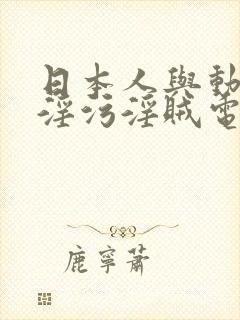 日本人與動
淫污淫賊電
鹿寧蕭